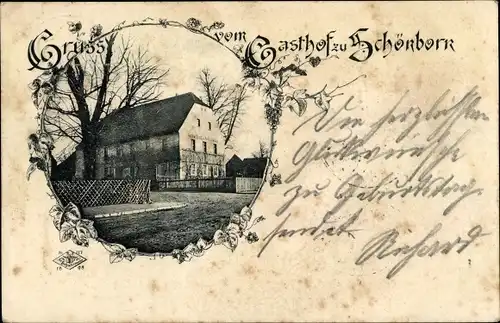 Gruss vom Gasthof zu Schönborn
Die herzlichsten
Glückwünsche
zu Geburtstag
sendet
Richard